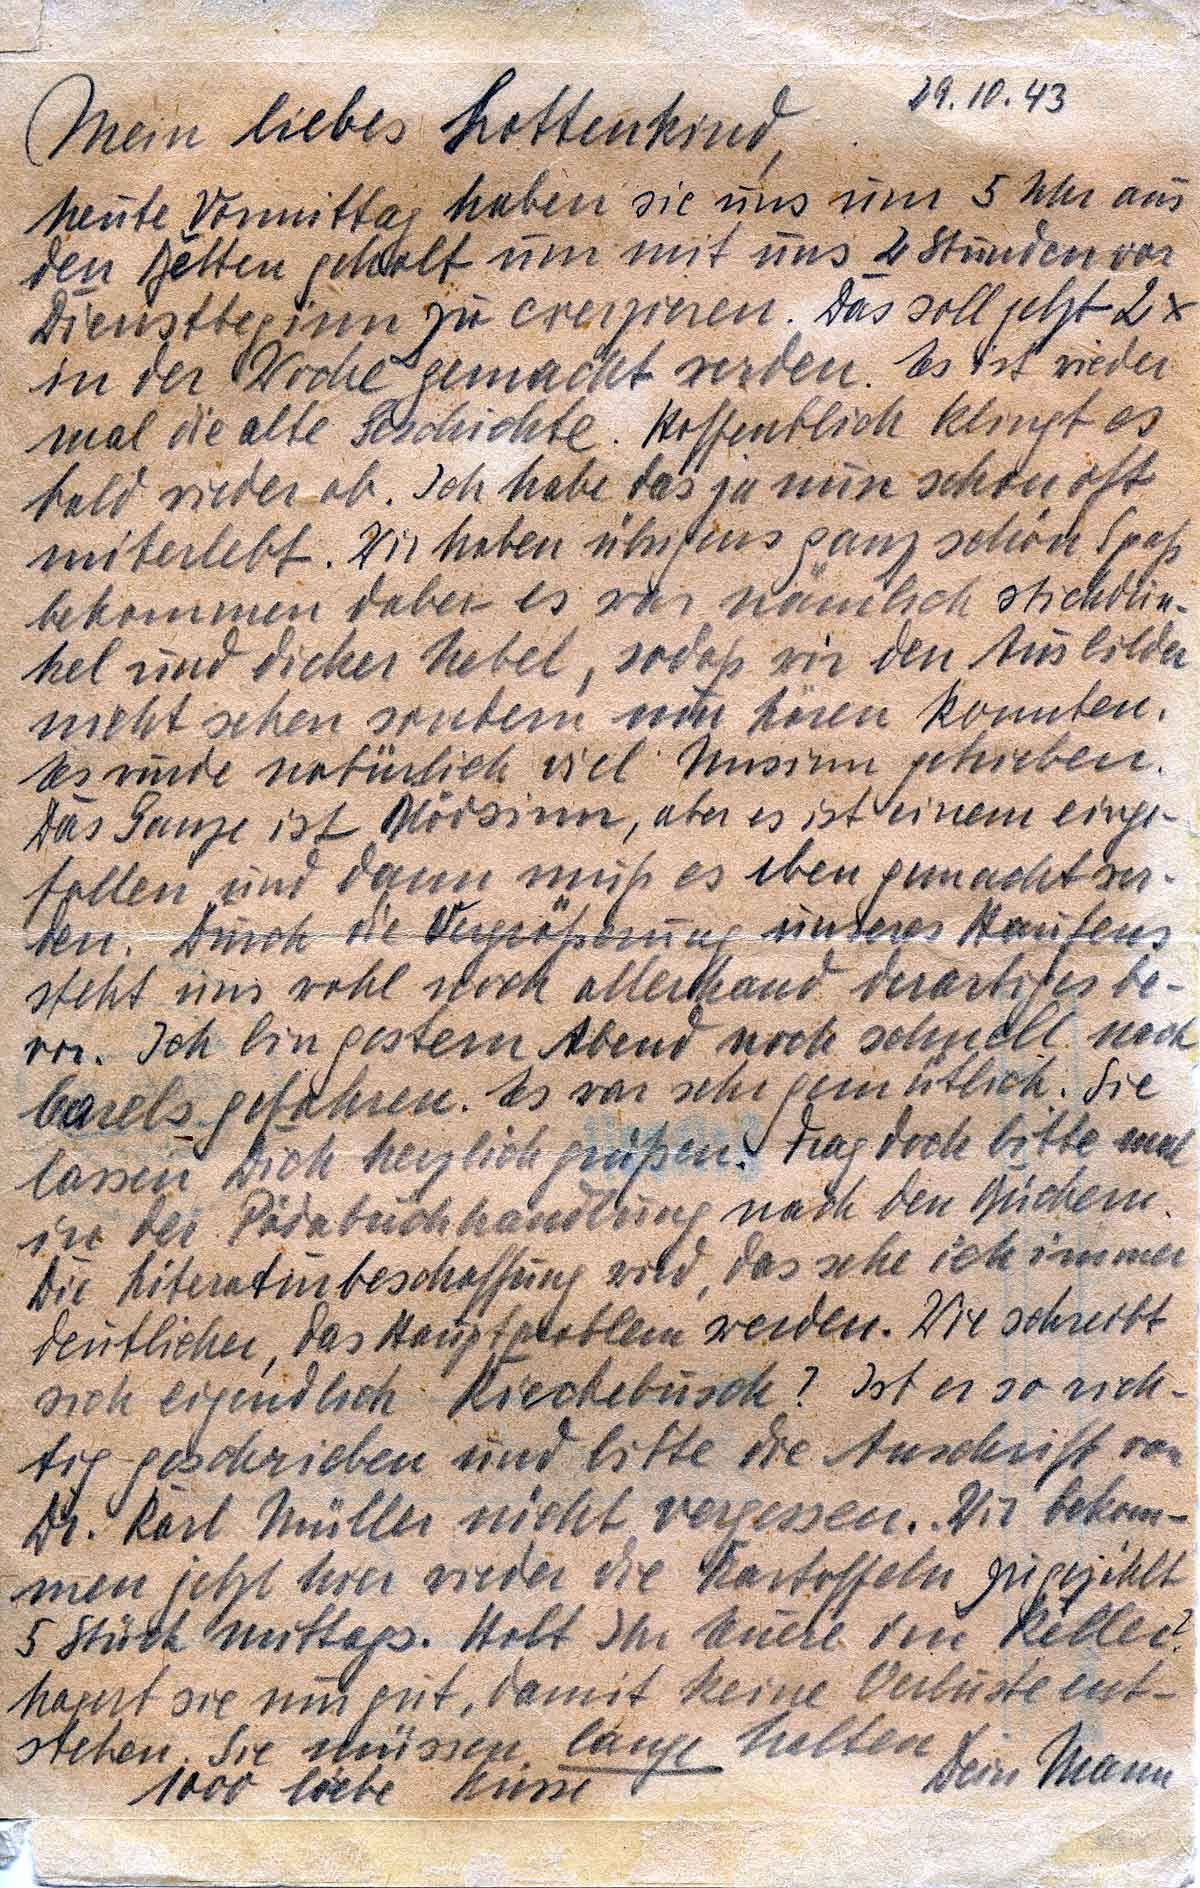 29.10.43
Mein liebes Lottenkind,
heute Vormittag haben sie uns um 5 Uhr aus
den Betten geholt um mit uns 2 Stunden vor
Dienstbeginn zu exerzieren. Das soll jetzt 2x
in der Woche gemacht werden. Es ist wieder
mal die alte Geschichte. Hoffentlich klingt es
bald wieder ab. Ich habe das ja nun schon oft
miterlebt. Wir haben übrigens ganz schön Spaß
bekommen dabei es war nämlich stichdun-
kel und dicker Nebel, sodaß wir den Ausbilder
nicht sehen sondern nur hören konnten.
Es wurde natürlich viel Unsinn getrieben.
Das Ganze ist Blödsinn, aber es ist einem einge-
fallen und dann muß es eben gemacht wer-
den. Durch die Vergrößerung unseres Haufens
steht uns wohl noch allerhand derartiges be-
vor. Ich bin gestern Abend noch schnell nach
Carels gefahren. Es war sehr gemütlich. Sie
lassen Dich herzlich grüßen. Frag doch bitte mal
in der Pädabuchhandlung nach den Büchern.
Die Literaturbeschaffung wird, das sehe ich immer
deutlicher, das Hauptproblem werden. Wie schreibt
sich eigendlich Kieckebusch? Ist es so rich-
tig geschrieben und bitte die Anschrift von
Dr. Karl Müller nicht vergessen. Wir bekom-
men jetzt hier wieder die Kartoffeln zugezählt
5 Stück mittags. Habt Ihr Euere im Keller?
Lagert sie nur gut, damit keine Verluste ent-
stehen. Sie müssen lange halten
1000 liebe Küsse Dein Mann